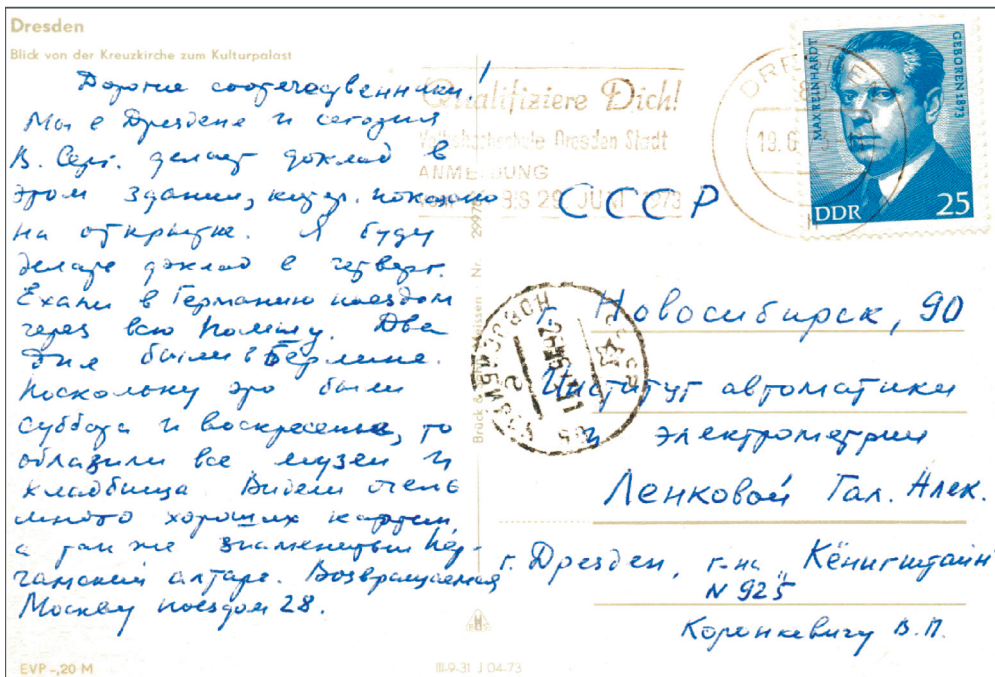 Dresden
Blick von der Kreuzkirche zum Kulturpalast
Дорогие соотечественники!
Мы в Дрездене и сегодня
В. Серг. делает доклад в
этом здании, котор. показано
на открытке. Я буду
делать доклад в четверг.
Ехали в Германию поездом
через всю Польшу. Два
дня были в Берлине.
Поскольку это были
суббота и воскресенье, то
облазили все музеи и
кладбища. Видели очень
много хороших картин,
а так же знаменитый Пер-
гамский алтарь. Возвращаемся
Москву поездом 28.
EVP -,20 M
Qualifiziere Dich!
Volkshochschule Dresden Stadt
ANMELDUNG
BIS 29. JUNI 1973
DRESDEN
19.6
MAX REINHARDT
GEBOREN 1873
DDR 25
СССР
г. Новосибирск, 90
Институт автоматики
и электрометрии
Ленковой Гал. Алек.
г. Дрезден, г-на „Кёнигштайн"
N 925
Коронкевичу В.П.
III-9-31 J 04-73